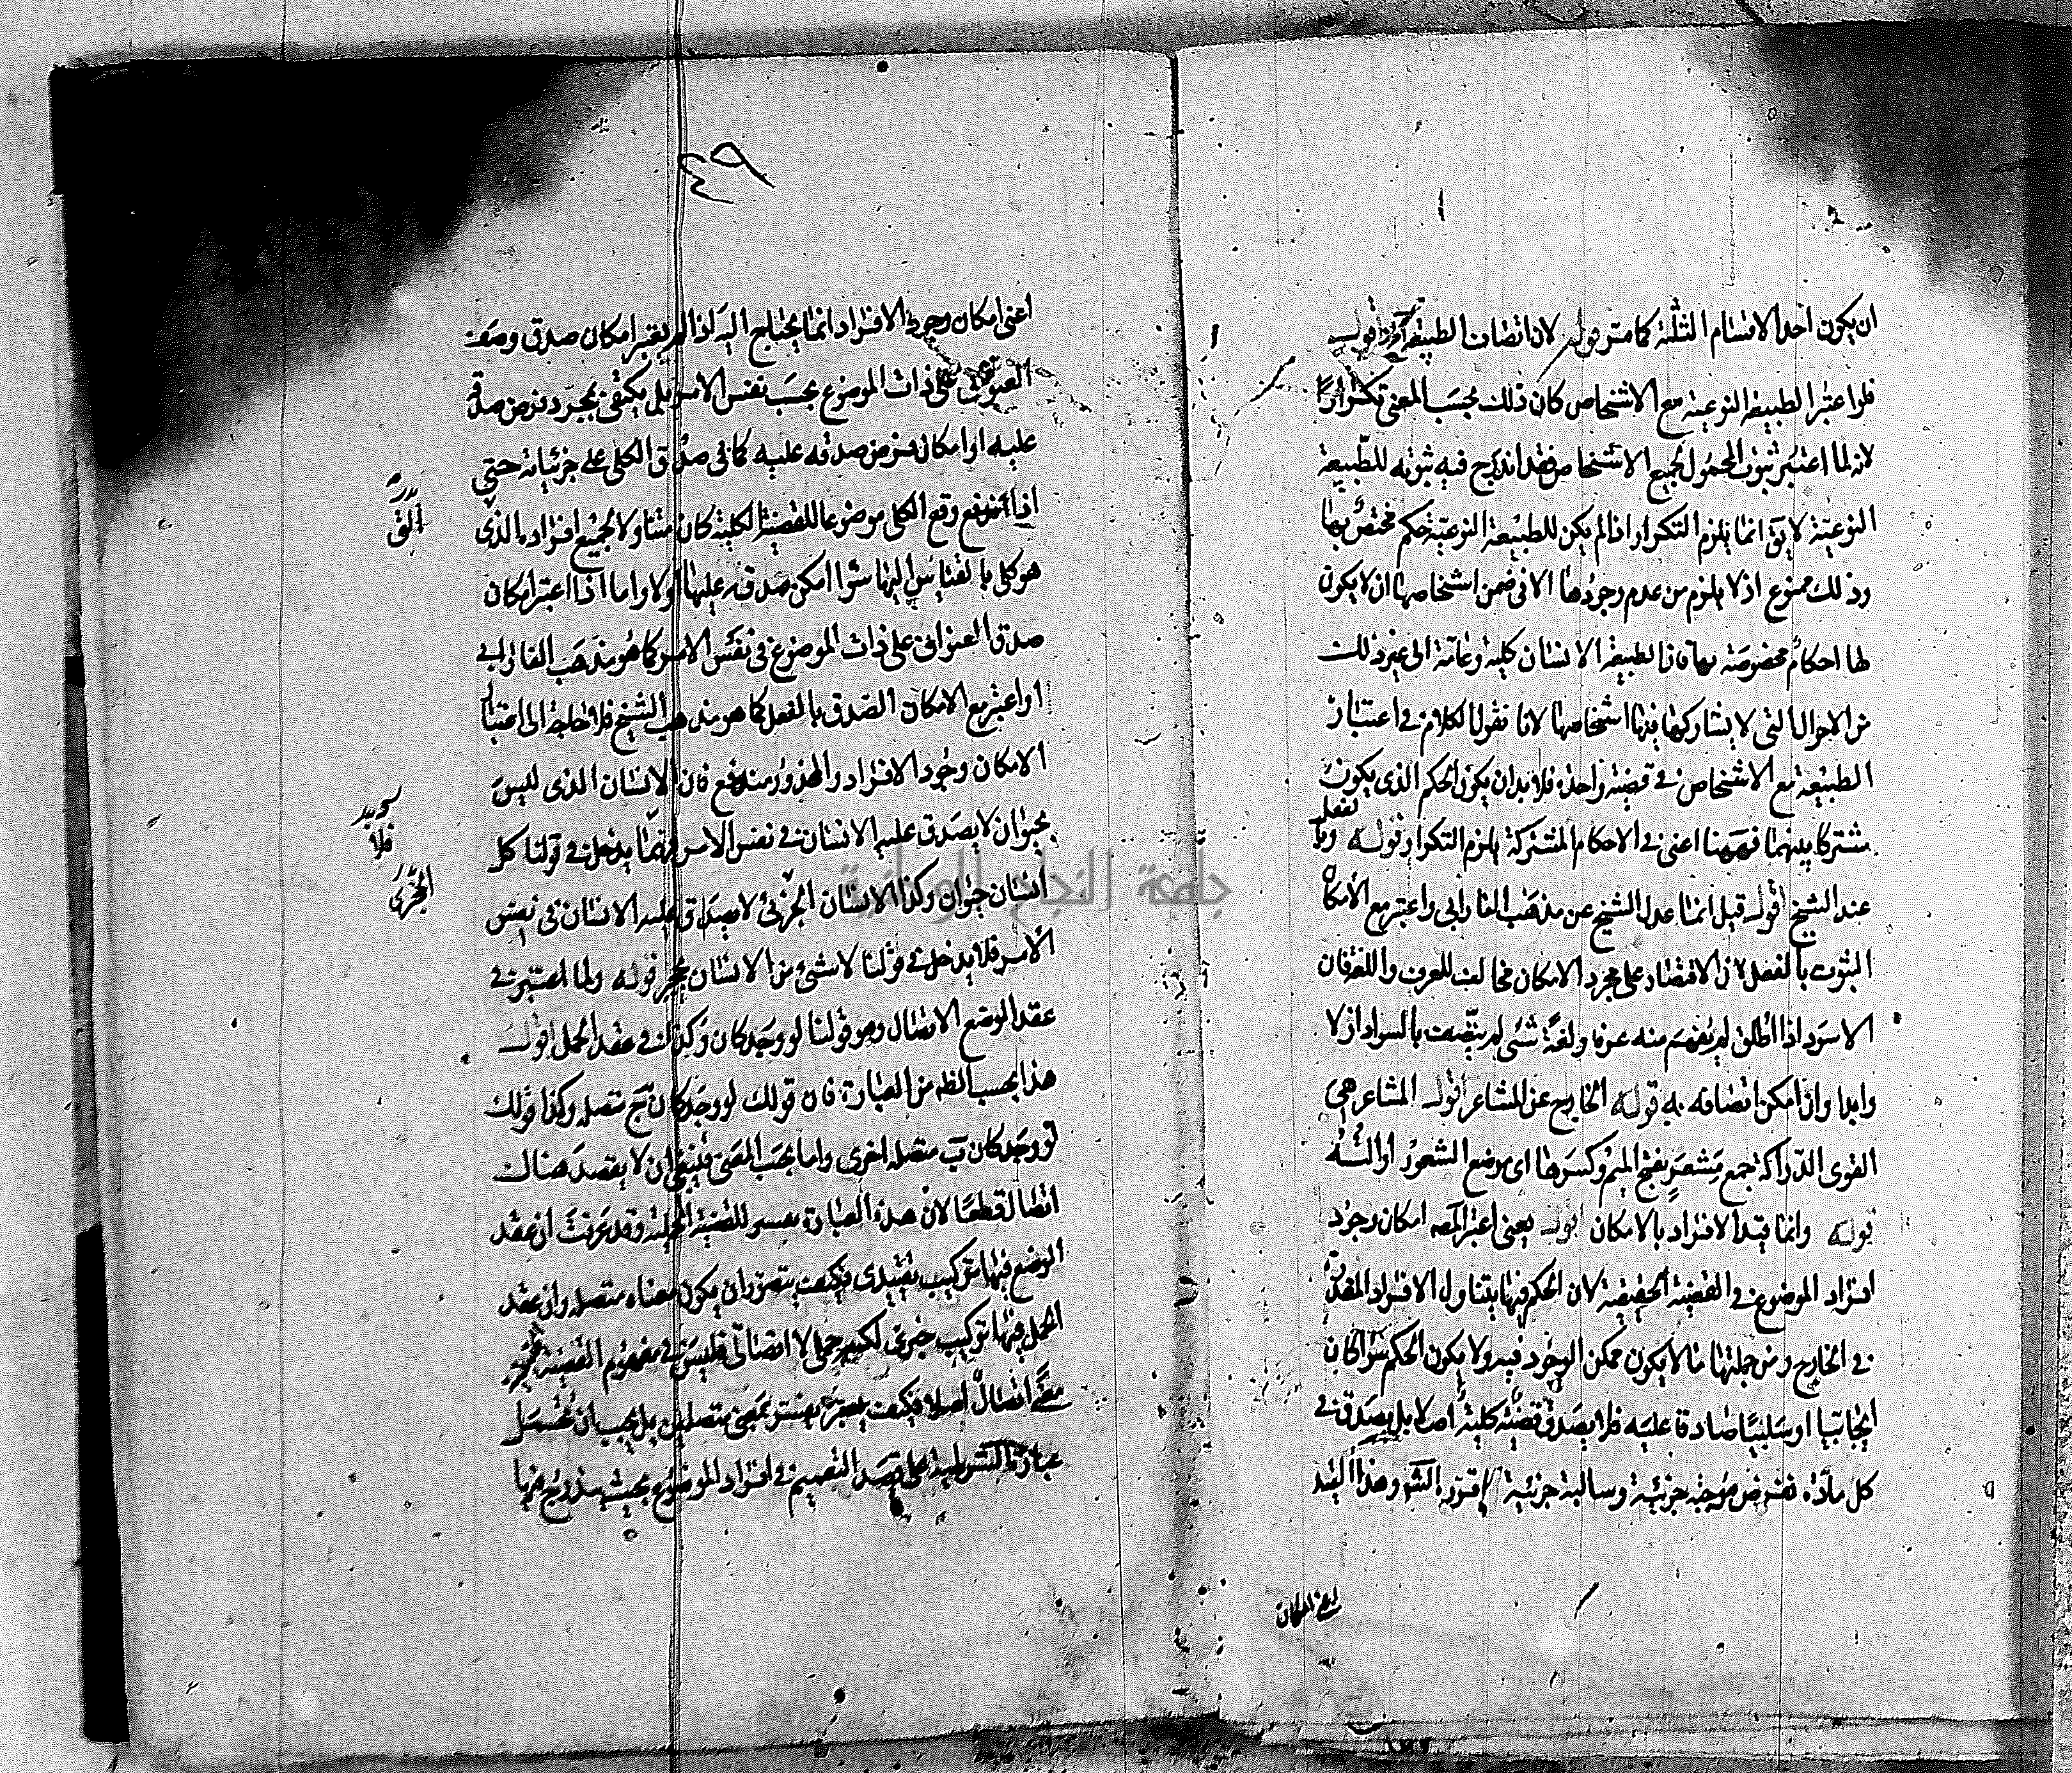 ان يكون احد الاقسام الثلثة كما مر قوله لان اتصاف الطبيعة اقول
فلو اعتبر الطبيعة النوعية مع الاشخاص كان ذلك بحسب المعنى تكرارا
لانه لما اعتبر ثبوت المحمول لجميع الاشخاص فقد اندرج فيه ثبوته للطبيعة
النوعية لا يق انما يلزم التكرار اذا لم يكن للطبيعة النوعية حكم مختص بها
وذلك ممنوع اذ لا يلزم من عدم وجودها الا في ضمن اشخاصها ان لا يكون
لها احكام مخصوصة بها فان الطبيعة الانسان كلية وعامة الى غير ذلك
من الاحوال التي لا يشاركها فيها اشخاصها لانا نقول الكلام في اعتبار
الطبيعة مع الاشخاص في قضية واحدة فلا بد ان يكون الحكم الذي يكون
مشتركا بينهما فههنا اعنى في الاحكام المشتركة يلزم التكرار قوله وبالفعل
عند الشيخ اقول قيل انما عدل الشيخ عن مذهب الفارابي واعتبر مع الامكان
الثبوت بالفعل لان الاقتصار على مجرد الامكان مخالف للعرف واللغة فان
الاسود اذا اطلق لم يفهم منه عرفا ولغة شئ لم يتصف بالسواد ازلا
وابدا وان امكن اتصافه به قوله الخارج عن المشاعر اقول المشاعر هي
القوى الدراكة جمع مشعر بفتح الميم وكسرها اى موضع الشعور او آلته
قوله وانما قيد الافراد بالامكان اقول يعنى اعتبر المص امكان وجود
افراد الموضوع في القضية الحقيقية لان الحكم فيها يتناول الافراد المقدرة
في الخارج ومن جملتها ما لا يكون ممكن الوجود فيه ولا يكون الحكم سواء كان
ايجابيا او سلبيا صادقا عليه فلا يصدق قضية كلية اصلا بل يصدق في
كل مادة تفرض موجبة جزئية وسالبة جزئية وهذا القيد
اعنى امكان
٤٩
اعنى امكان وجود الافراد انما يحتاج اليه اذا لم يعتبر امكان صدق وصف
العنوان على ذات الموضوع بحسب نفس الامر بل يكتفى بمجرد فرض صدقه
عليه او امكان فرض صدقه عليه كما في صدق الكلي على جزئياته حتى
اذا وقع الكلي موضوعا للقضية الكلية كان متناولا لجميع افراده الذى
التى
هو كلي بالقياس اليها سواء امكن صدقه عليها اولا واما اذا اعتبر امكان
صدق العنوان على ذات الموضوع في نفس الامر كما هو مذهب الفارابي
او اعتبر مع الامكان الصدق بالفعل كما هو مذهب الشيخ فلا حاجة الى اعتبار
الامكان وجود الافراد والمحذور مندفع فان الانسان الذى ليس
بحيوان لا يصدق عليه الانسان في نفس الامر يدخل في قولنا كل
فلا
انسان حيوان وكذا الانسان الحجرى لا يصدق عليه الانسان في نفس
الحجرى
الامر فلا يدخل في قولنا لا شئ من الانسان بحجر قوله ولما اعتبر في
عقد الوضع الاتصال وهو قولنا لو وجد كان وكذلك في عقد الحمل اقول
هذا بحسب الظ من العبارة فان قولك لو وجد كان ج متصلة وكذا قولك
لو وجد كان ب متصلة اخرى واما بحسب المعنى فينبغى ان لا يقصد هناك
اتصال قطعا لان هذه العبارة تفسير للقضية الحملية وقد عرفت ان عقد
الوضع فيها تركيب تقييدى فكيف يتصور ان يكون معناه متصلة وان عقد
الحمل فيها تركيب خبرى لكنه حملى لا اتصالى فليس في مفهوم القضية
اتصال اصلا فكيف بمتصلتين بل يجب ان تحمل
عبارة الشرطية على قصد التعميم في افراد الموضوع بحيث يندرج فيها